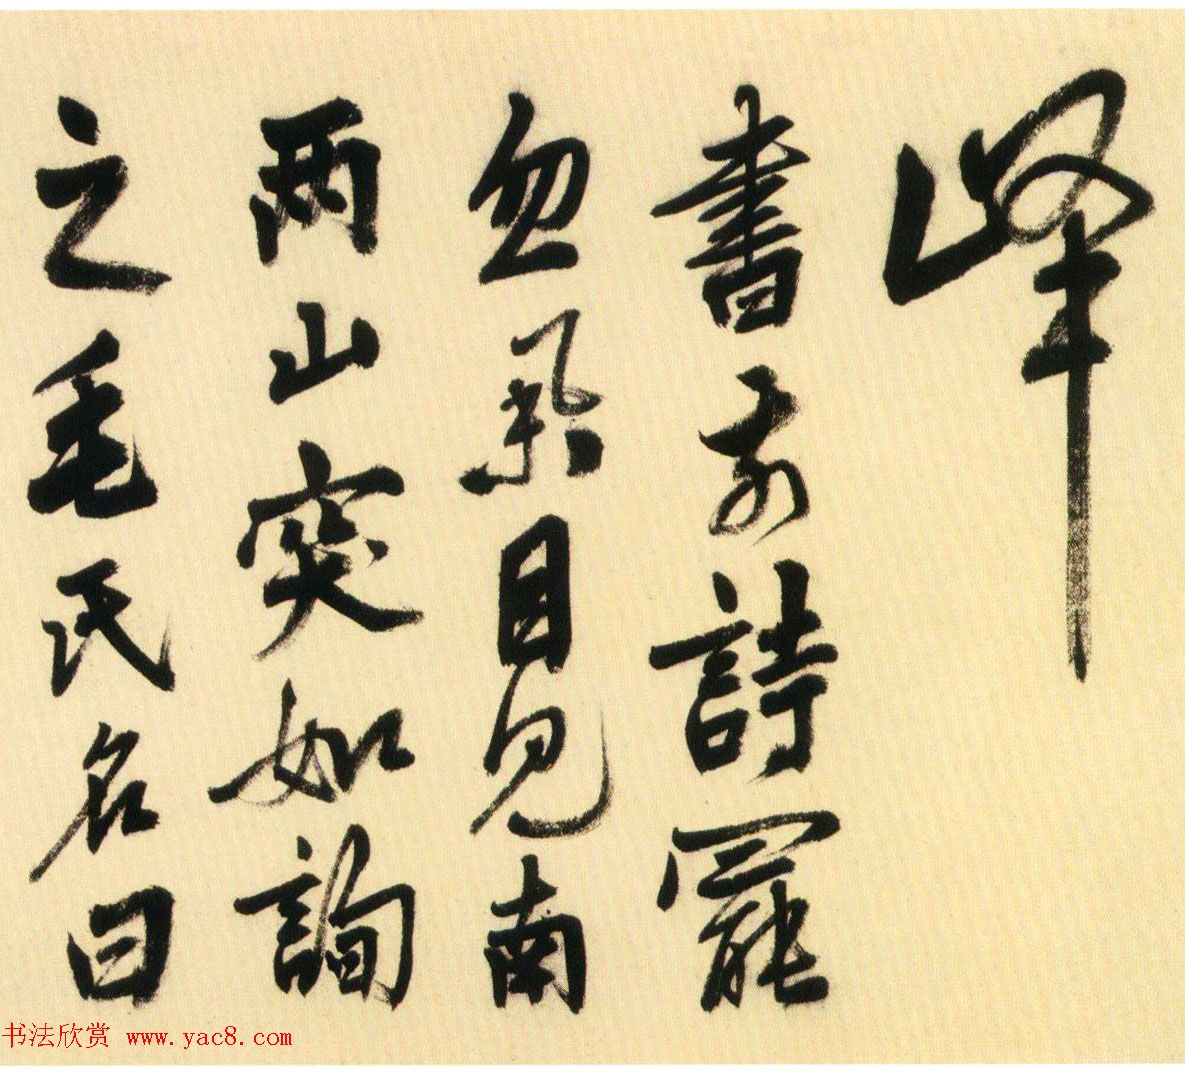 峰
書前詩罷
忽舉目見南
两山突如詢
之毛氏名曰
书法欣赏 www.yac8.com